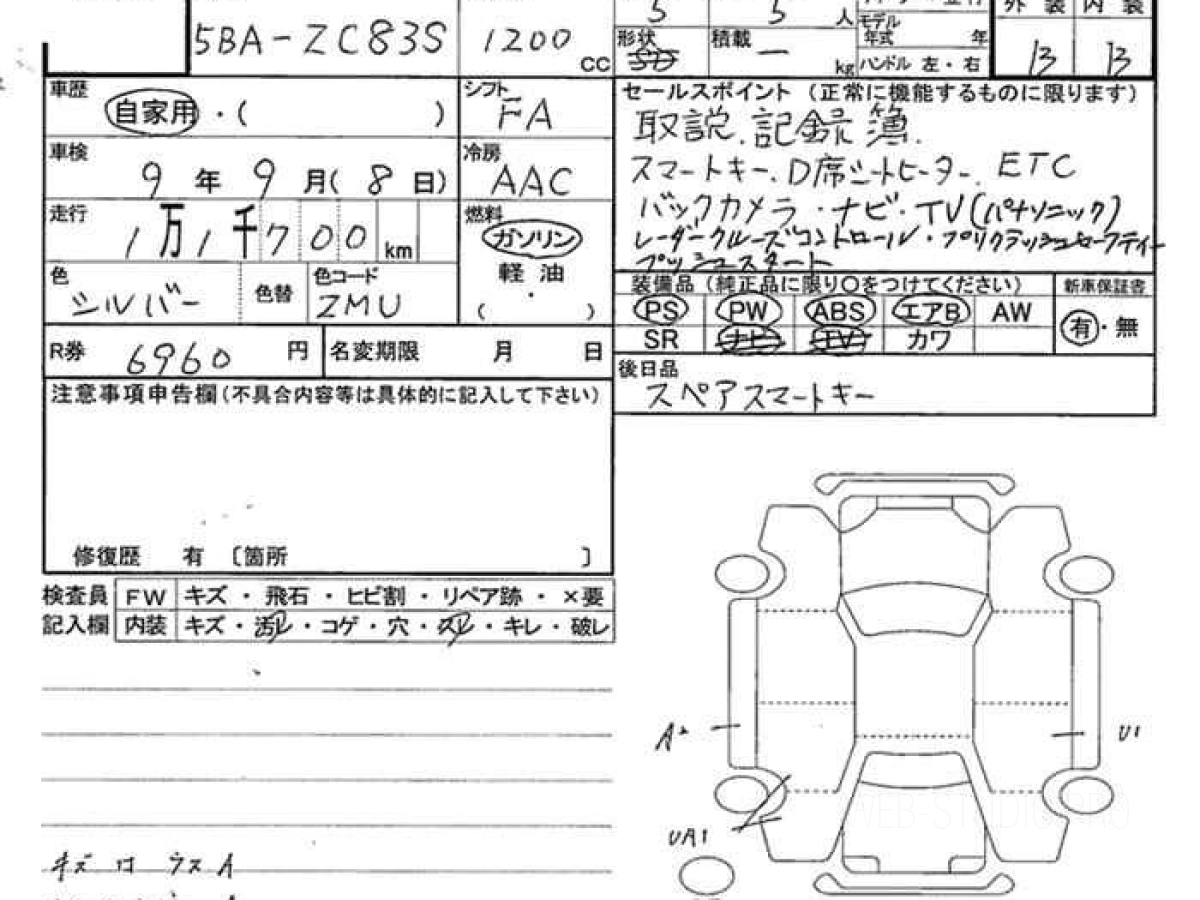 5BA-ZC83S 1200 cc
5 5 人
モデル
年式 年
外装 内装
形状 積載 — kg
ハンドル 左・右
13 13
車歴
自家用・( )
シフト
FA
セールスポイント (正常に機能するものに限ります)
取説.記録簿.
スマートキー.D席シートヒーター. ETC
バックカメラ・ナビ・TV(パナソニック)
レーダークルーズコントロール・プリクラッシュセーフティー
プッシュスタート
車検
9 年 9 月( 8 日)
冷房
AAC
走行
1万1千700 km
燃料
ガソリン
軽油
・
( )
色
シルバー
色替
色コード
ZMU
装備品 (純正品に限り○をつけてください) 新車保証書
PS PW ABS エアB AW
SR ナビ TV カワ
有・無
R券 6960 円 名変期限 月 日
後日品
スペアスマートキー
注意事項申告欄(不具合内容等は具体的に記入して下さい)
修復歴 有 〔箇所 〕
検査員 FW キズ・飛石・ヒビ割・リペア跡・×要
記入欄 内装 キズ・汚レ・コゲ・穴・スレ・キレ・破レ
U1
UA1
キズ ロ ウス A
WEB-STUDIO.PRO